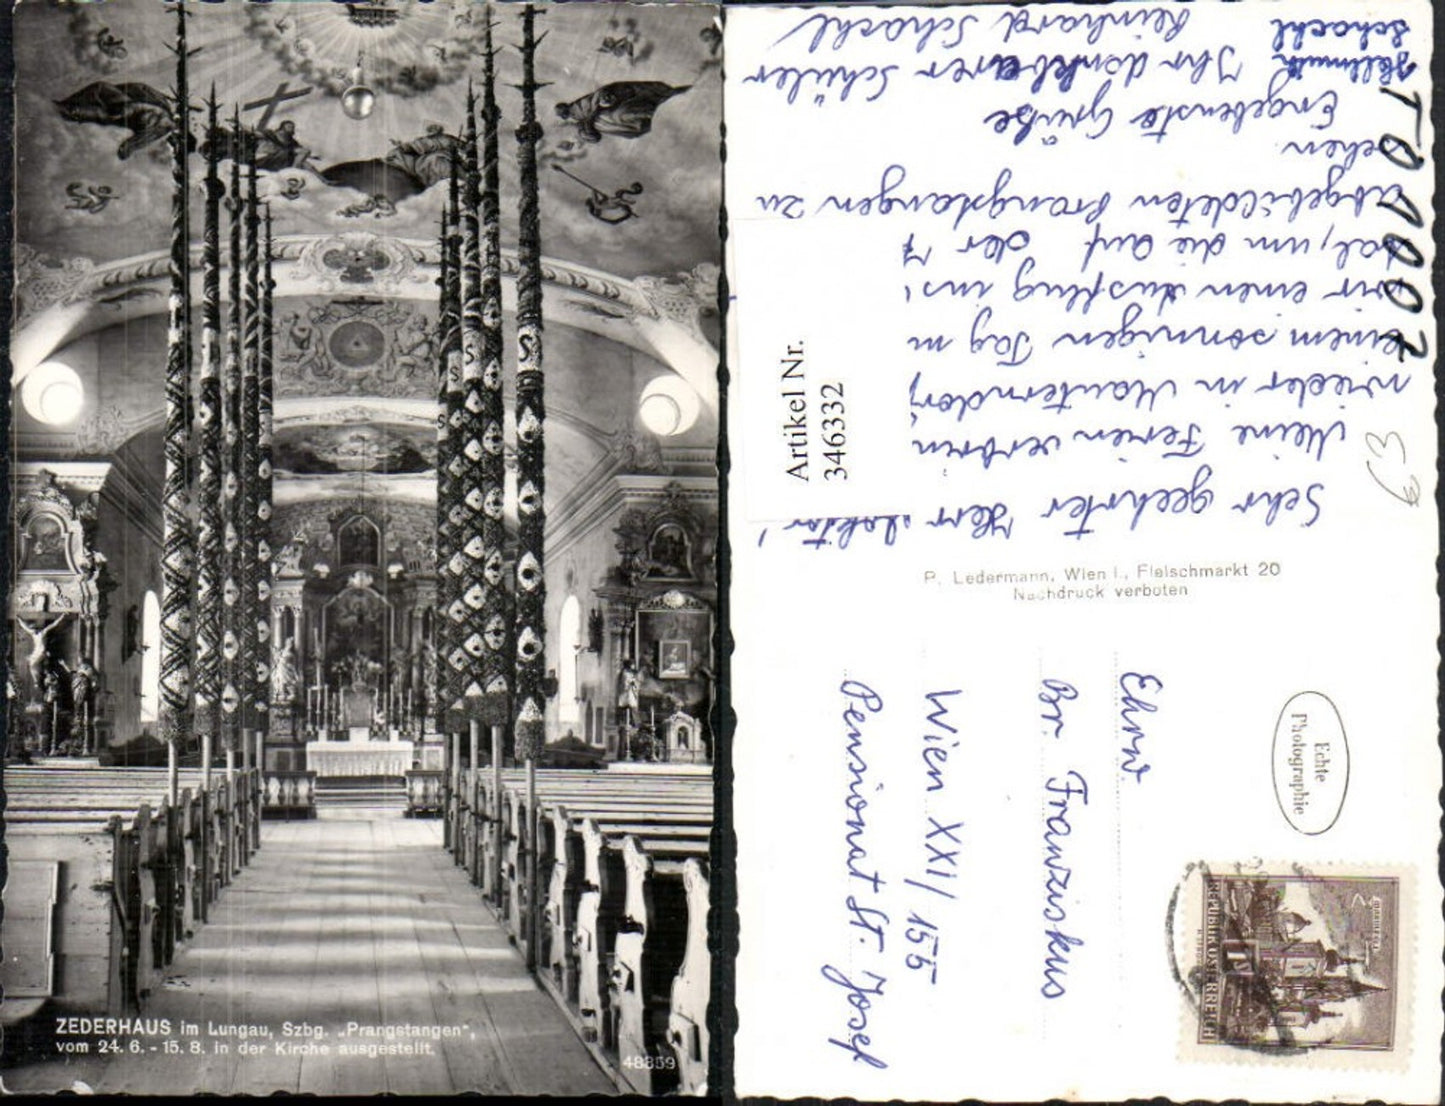 ZEDERHAUS im Lungau, Szbg. „Prangstangen“,
vom 24. 6. - 15. 8. in der Kirche ausgestellt.
48359
Sehr geehrter Herr
Meine Ferien verbrin
wieder in Mauterndorf
einem sonnigen Tag m
wir einen Ausflug ins
tal, um die auf der
abgebildeten Prangstangen zu
sehen.
Ergebenste Grüße
Ihr dankbarer Schüler
Reinhard Schachl
Hellmuth
Schachl
TO 1007
Artikel Nr.
346332
€3
P. Ledermann, Wien I., Fleischmarkt 20
Nachdruck verboten
Echte
Photographie
Ehrw
Br. Franziskus
Wien XXI/155
Pensionat St. Josef
REPUBLIK ÖSTERREICH